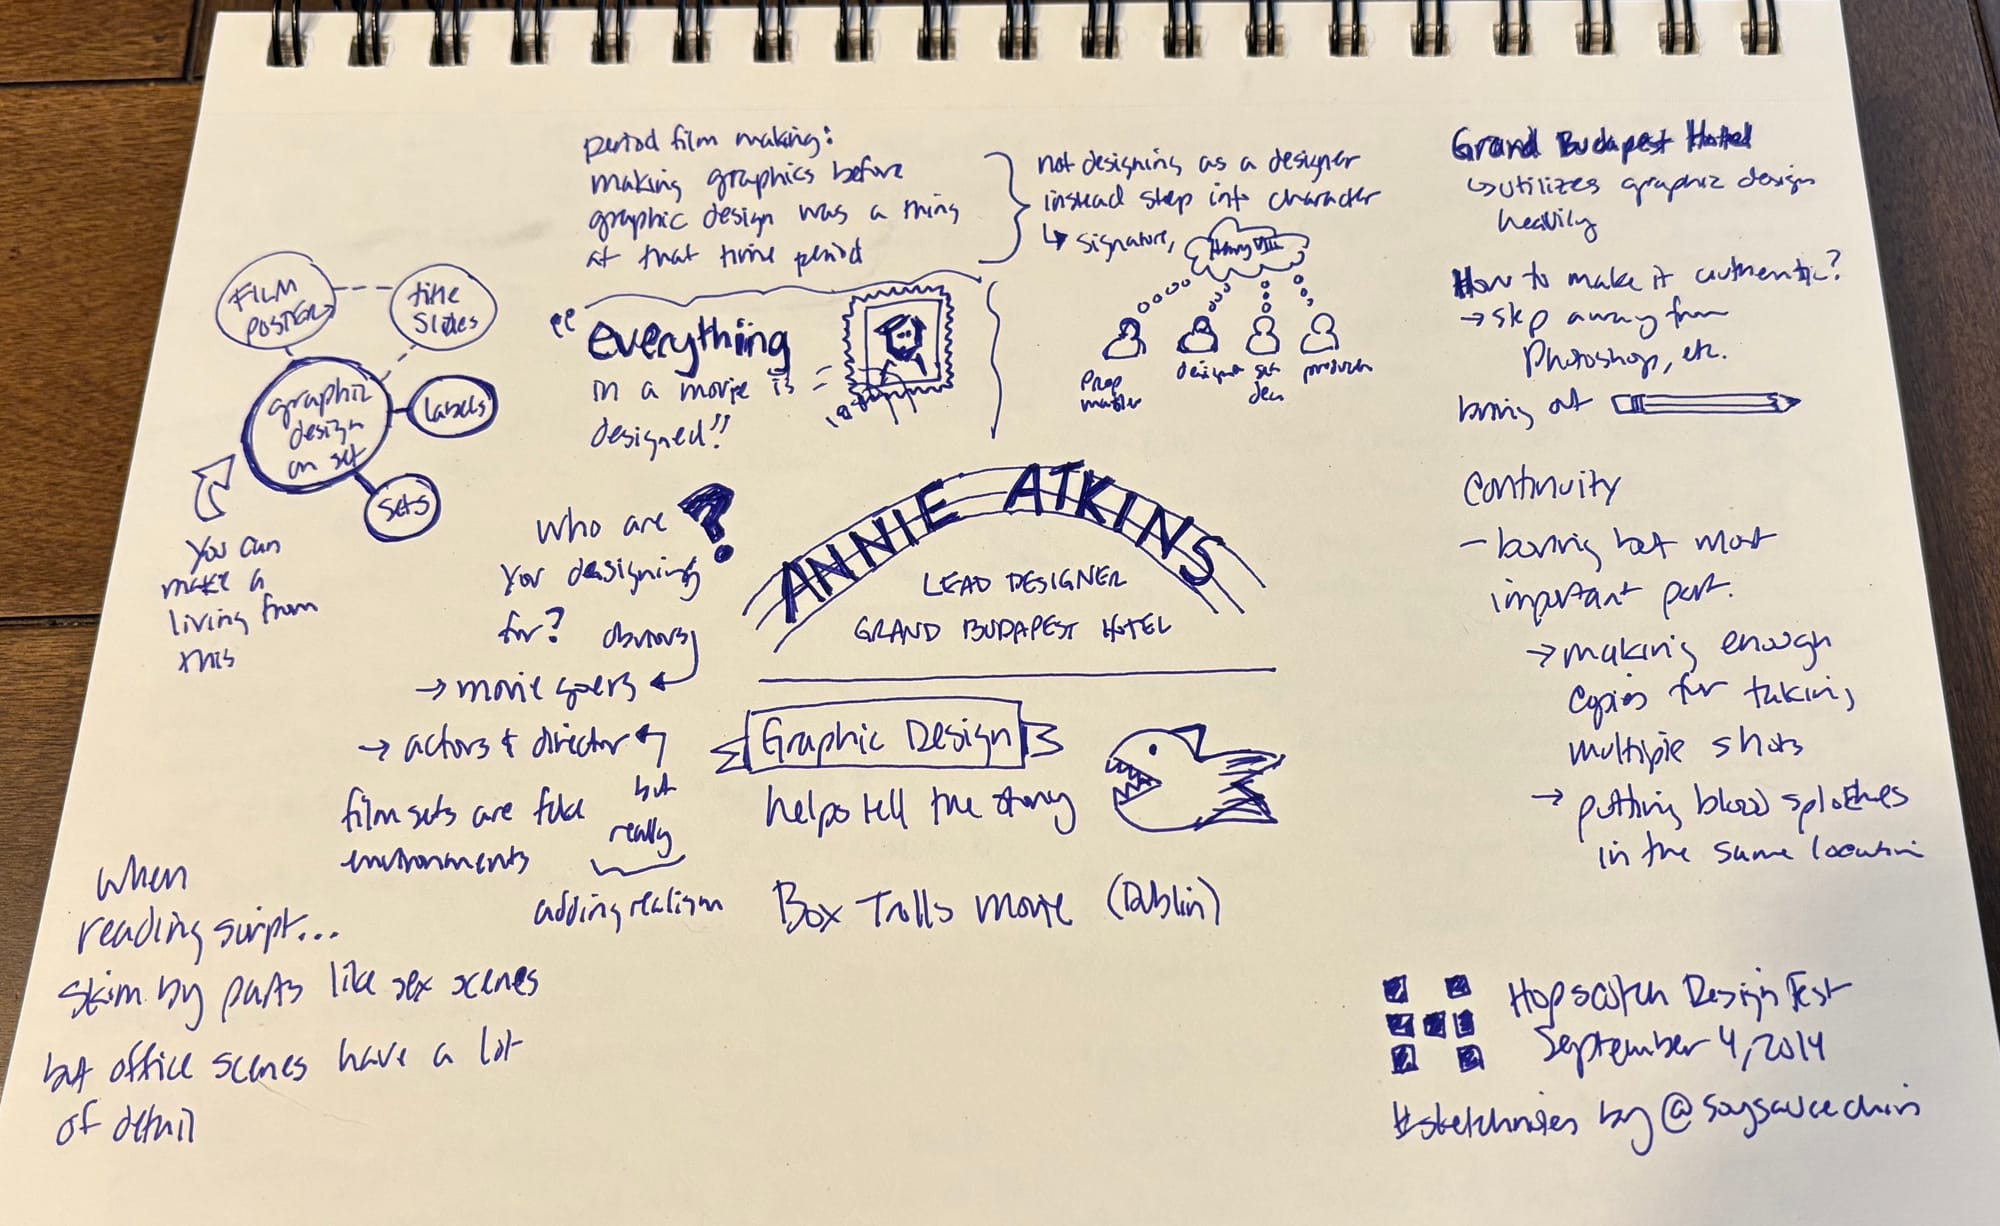 ANNIE ATKINS
LEAD DESIGNER
GRAND BUDAPEST HOTEL
FILM
POSTERS
title
slides
graphic
design
on set
labels
sets
You can
make a
living from
this
period film making:
making graphics before
graphic design was a thing
at that time period
not designing as a designer
instead step into character
↳ signature,
Henry VIII
prop
master
designer
set
dec
producer
"everything
in a movie is
designed!"
who are
you designing
for?
?
obvious
→ movie goers
→ actors & director
film sets are fake
environments
but
really
adding realism
Graphic Design
helps tell the story
Box Trolls movie (Dublin)
when
reading script...
skim by parts like sex scenes
but office scenes have a lot
of detail
Grand Budapest Hotel
↳ utilizes graphic design
heavily
How to make it authentic?
→ step away from
Photoshop, etc.
bring out
Continuity
- boring but most
important part.
→ making enough
copies for taking
multiple shots
→ putting blood splotches
in the same location
Hopscotch Design Fest
September 4, 2014
#sketchnotes by @soysaucechin